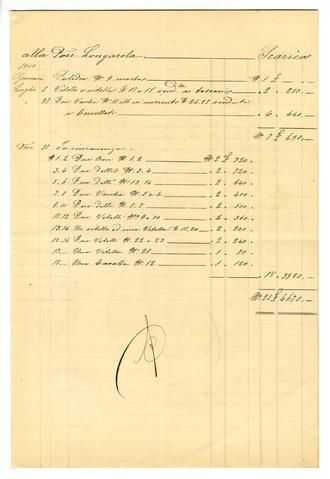 alla Poss. Lungarola Scarico
1900
Gennaio Puledra N. 9 morta N. 1 £ —
Luglio 5 Vitello e vitella N. 17 e 18 vend.te a " 2 " 250.-
28 Due Vacche N. 11 e 16 in N. 24.25 vendute
a " 4 " 440.-
N. 7 £ 690.-
Dic. 31 In rimanenza
N. 1.2 Due Buoi N. 1.2 N. 2 £ 720.-
3.4 Due detti N. 3.4 " 2 " 720.-
5.6 Due detti N. 13.14 " 2 " 640.-
7.8 Due Vacche N. 5 e 6 " 2 " 400.-
9.10 Due dette N. 7.8 " 2 " 500.-
11.12 Due Vitelli N. 9 e 10 " 2 " 360.-
13.14 Un vitello ed una Vitella N. 11,20 " 2 " 200.-
15.16 Due Vitelli N. 22 e 23 " 2 " 240.-
17.- Una Vitella N. 21 " 1 " 80.-
18.- Una Cavalla N. 12 " 1 " 120.-
18 " 3980.-
N. 25 £ 4670.-